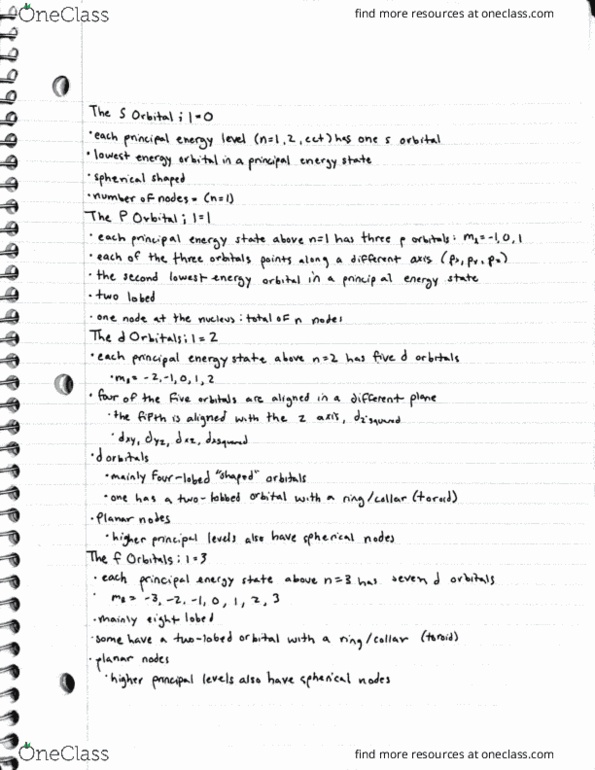 OneClass
find more resources at oneclass.com
The S Orbital ; l=0
• each principal energy level (n=1, 2, ect) has one s orbital
• lowest energy orbital in a principal energy state
• spherical shaped
• number of nodes = (n=1)
The P Orbital ; l=1
• each principal energy state above n=1 has three p orbitals : ml = -1, 0, 1
• each of the three orbitals points along a different axis
• the second lowest energy orbital in a principal energy state
• two lobed
• one node at the nucleus : total of n nodes
The d Orbitals ; l = 2
• each principal energy state above n=2 has five d orbitals
• ml = -2, -1, 0, 1, 2
• four of the five orbitals are aligned in a different plane
• the fifth is aligned with the z axis, dz squared
• dxy, dyz, dxz, dx squared
• d orbitals
• mainly four-lobed "shaped" orbitals
• one has a two-lobbed orbital with a ring/collar (toroid)
• Planar nodes
• higher principal levels also have spherical nodes
The f Orbitals ; l = 3
• each principal energy state above n=3 has seven d orbitals
• ml = -3, -2, -1, 0, 1, 2, 3
• mainly eight lobed
• some have a two-lobed orbital with a ring/collar (toroid)
• planar nodes
• higher principal levels also have spherical nodes
OneClass
find more resources at oneclass.com